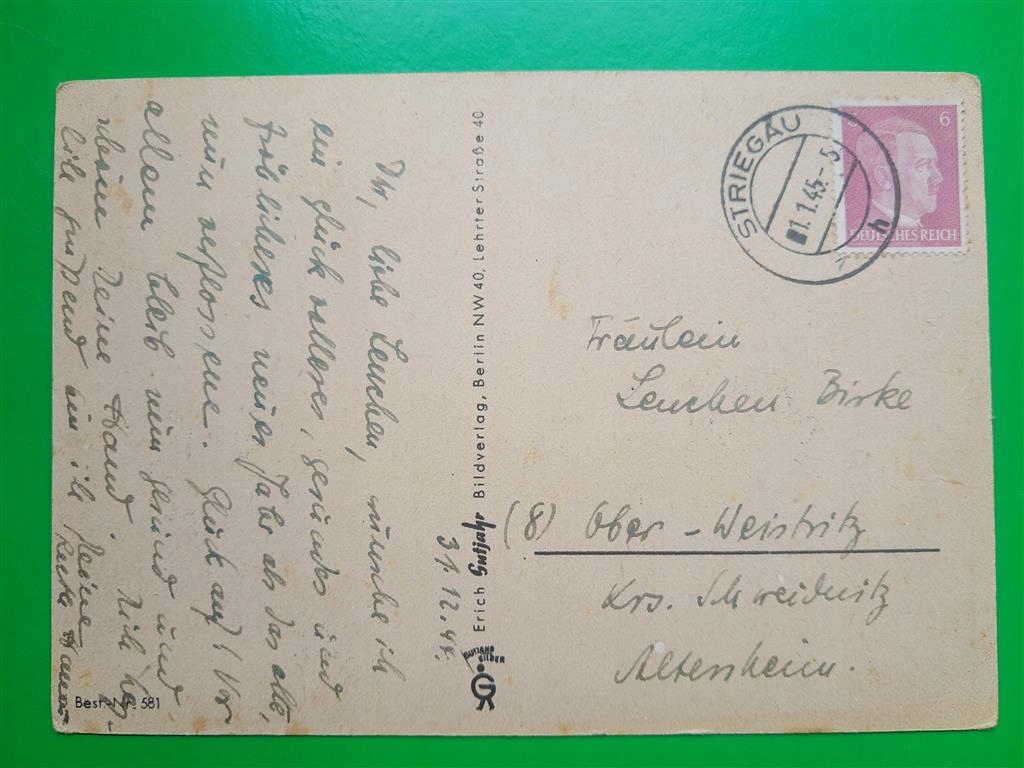 31.12.44.
Dir, liebe Lenchen, wünsche ich
ein glückvolleres, gesundes und
fröhlicheres neues Jahr als das alte,
nun verflossene. Glück auf! Vor
allem bleib nun gesund und
Deine Hand. Dich herz-
lich grüßend bin ich Deine
Erich Gutjahr Bildverlag, Berlin NW 40, Lehrter Straße 40
GUTJAHR
BILDER
Best.-Nr. 581
STRIEGAU
1.1.45.-5
h
1
6
DEUTSCHES REICH
Fräulein
Lenchen Birke
(8) Ober-Weistritz
Krs. Schweidnitz
Altersheim.